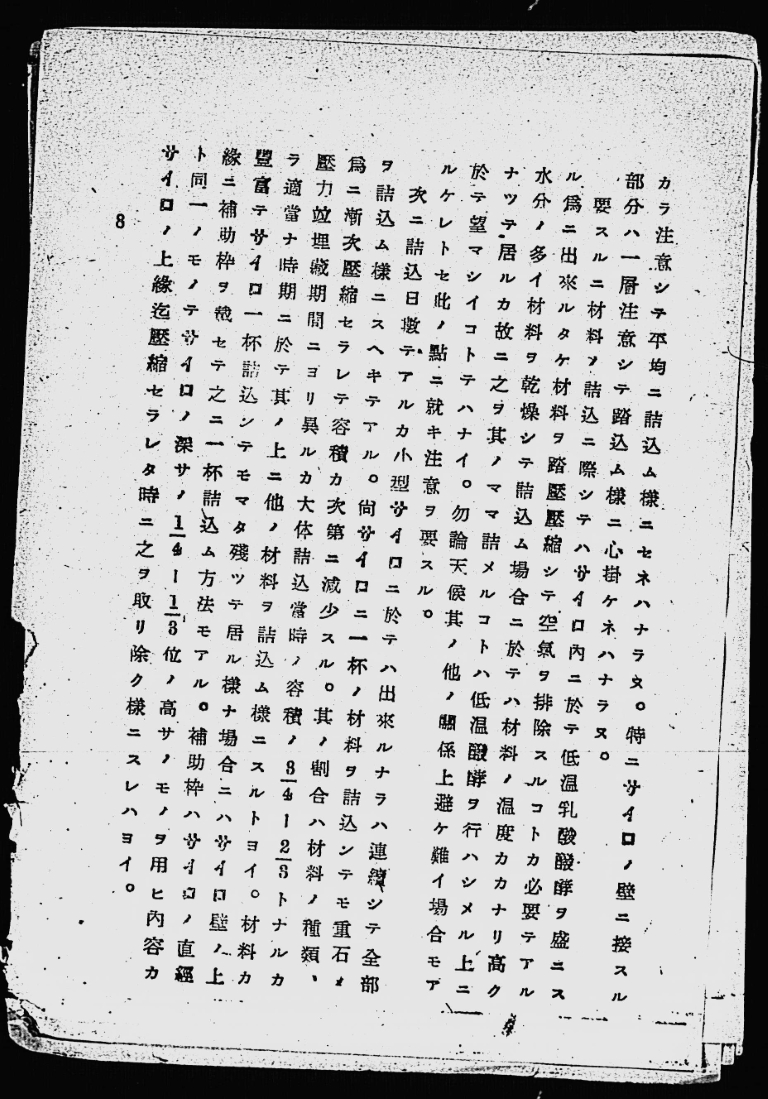 カラ注意シテ平均ニ詰込ム様ニセネハナラヌ。特ニサイロノ壁ニ接スル
部分ハ一層注意シテ踏込ム様ニ心掛ケネハナラヌ。
要スルニ材料ノ詰込ニ際シテハサイロ內ニ於テ低温乳酸醱酵ヲ盛ニス
ル爲ニ出來ルタケ材料ヲ踏壓壓縮シテ空氣ヲ排除スルコトカ必要テアル
水分ノ多イ材料ヲ乾燥シテ詰込ム場合ニ於テハ材料ノ温度カカナリ高ク
ナツテ居ルカ故ニ之ヲ其ノママ詰メルコトハ低温醱酵ヲ行ハシメル上ニ
於テ望マシイコトテハナイ。勿論天候其ノ他ノ關係上避ケ難イ場合モア
ルケレトセ此ノ點ニ就キ注意ヲ要スル。
次ニ詰込日數テアルカ小型サイロニ於テハ出來ルナラハ連續シテ全部
ヲ詰込ム様ニスヘキテアル。尙サイロニ一杯ノ材料ヲ詰込ンテモ重石ノ
爲ニ漸次壓縮セラレテ容積カ次第ニ減少スル。其ノ割合ハ材料ノ種類、
壓力竝埋藏期間ニヨリ異ルカ大体詰込當時ノ容積ノ3/4ー2/3トナルカ
ラ適當ナ時期ニ於テ其ノ上ニ他ノ材料ヲ詰込ム様ニスルトヨイ。材料カ
豐富テサイロ一杯詰込ンテモマタ殘ツテ居ル様ナ場合ニハサイロ壁ノ上
緣ニ補助枠ヲ載セテ之ニ一杯詰込ム方法モアル。補助枠ハサイロノ直經
ト同一ノモノテサイロノ深サノ1/4ー1/3位ノ高サノモノヲ用ヒ內容カ
サイロノ上緣迄壓縮セラレタ時ニ之ヲ取リ除ク様ニスレハヨイ。
8